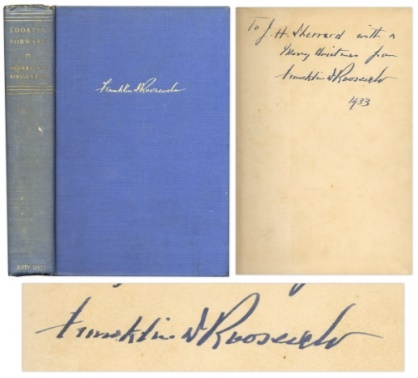 LOOKING
FORWARD
FRANKLIN D.
ROOSEVELT
JOHN DAY
Franklin D Roosevelt
To J. H. Sherrard with a
Merry Christmas from
Franklin D Roosevelt
1933
Franklin D Roosevelt